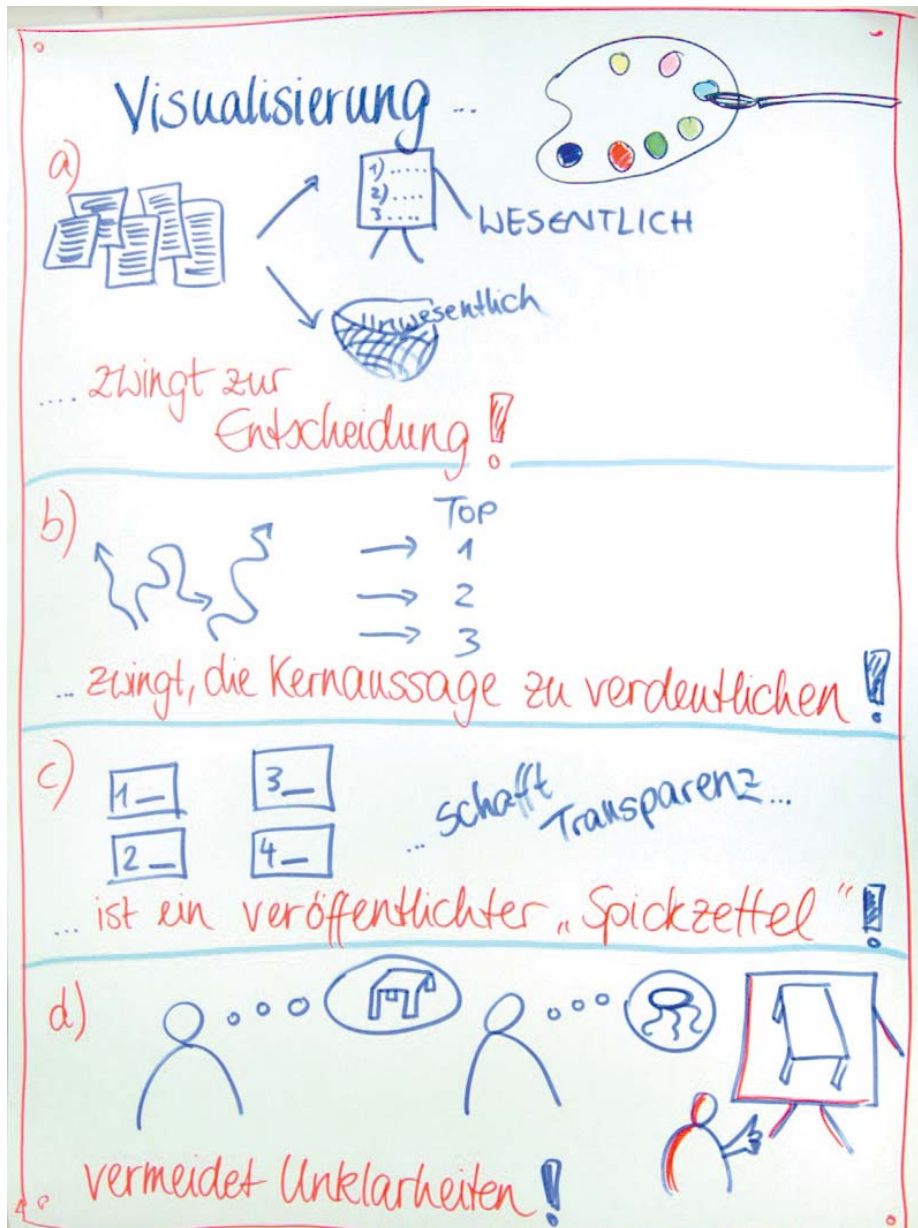 Visualisierung ...
a)
1) .....
2) ....
3 ....
WESENTLICH
Unwesentlich
.... zwingt zur
Entscheidung!
b)
Top
1
2
3
... zwingt, die Kernaussage zu verdeutlichen!
c)
1
3
2
4
... schafft
Transparenz...
... ist ein veröffentlichter „Spickzettel“!
d)
vermeidet Unklarheiten!